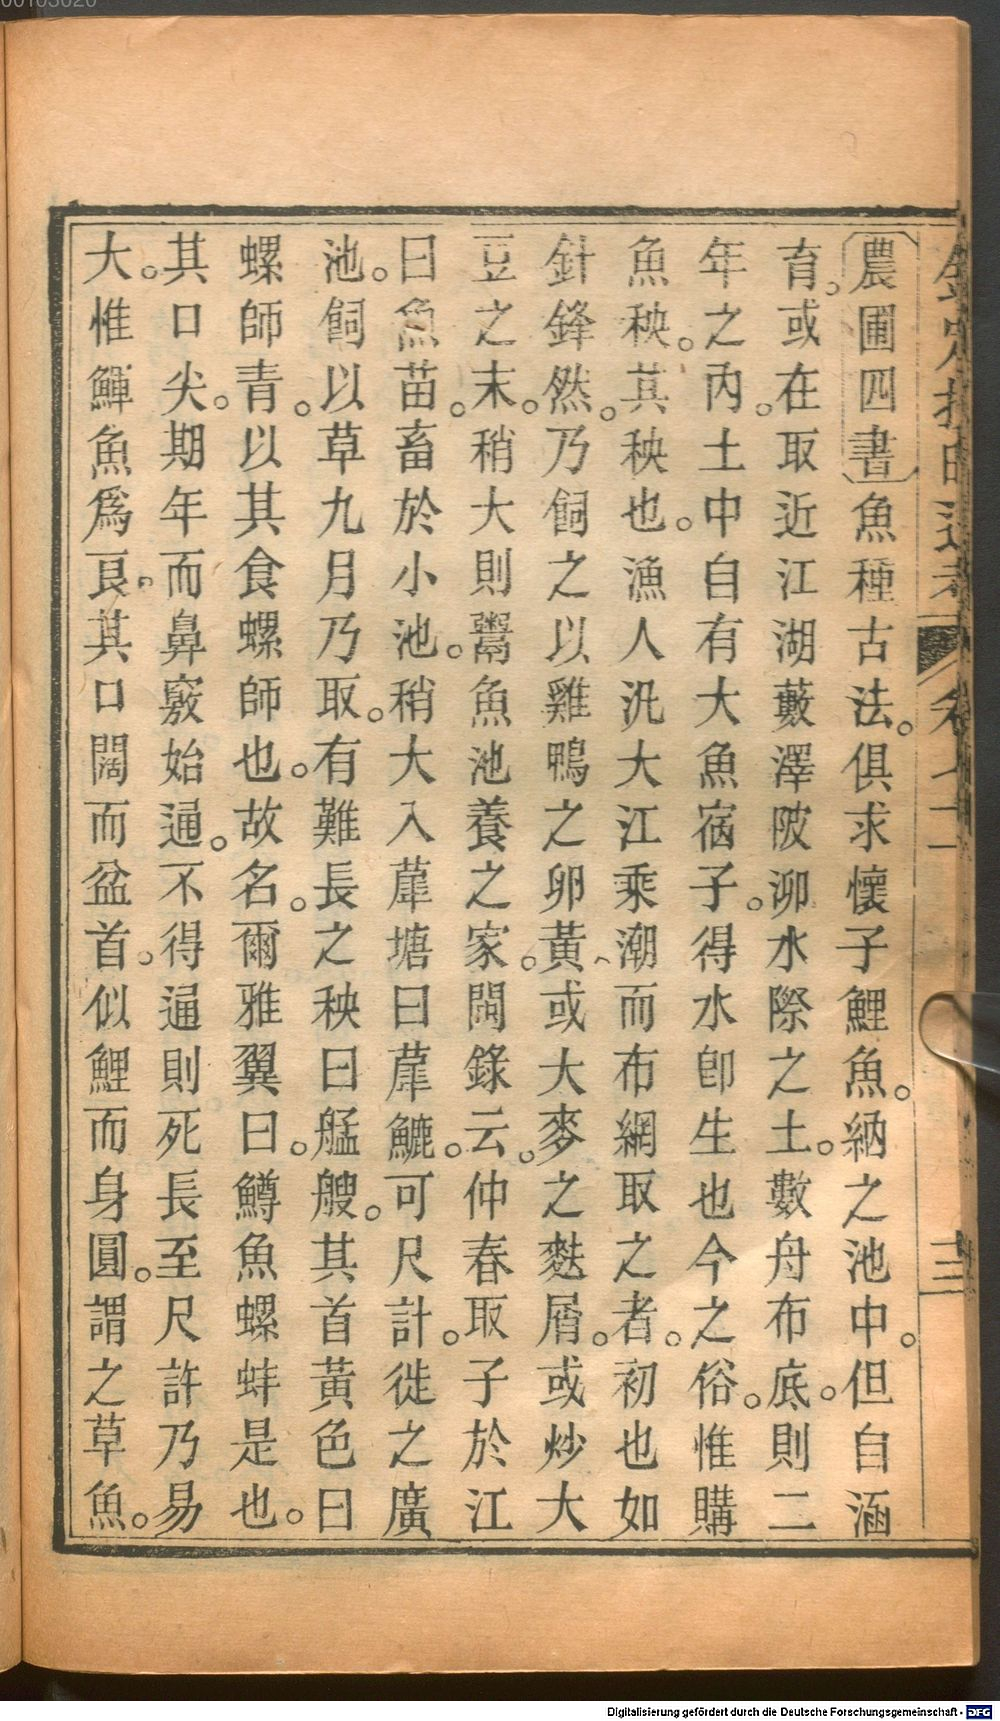 農圃四書魚種古法。俱求懷子鯉魚。納之池中。但自涵
育。或在取近江湖藪澤陂泖水際之土。數舟布底。則二
年之內。土中自有大魚宿子。得水卽生也今之俗。惟購
魚秧。其秧也。漁人汎大江乘潮而布網取之者。初也如
針鋒然。乃飼之以雞鴨之卵黃或大麥之麩屑。或炒大
豆之末。稍大則鬻魚池養之家。閩錄云。仲春取子於江
曰魚苗。畜於小池。稍大入𦸣塘曰𦸣鱍。可尺計。徙之廣
池。飼以草九月乃取。有難長之秧曰艋艘。其首黃色曰
螺師青。以其食螺師也。故名。爾雅翼曰。鱒魚螺蚌是也。
其口尖。期年而鼻竅始通。不得通則死長至尺許乃易
大。惟鯶魚爲良。其口闊而盆首。似鯉而身圓。謂之草魚。
欽定授時通考
卷
三
00103020
Digitalisierung gefördert durch die Deutsche Forschungsgemeinschaft - DFG